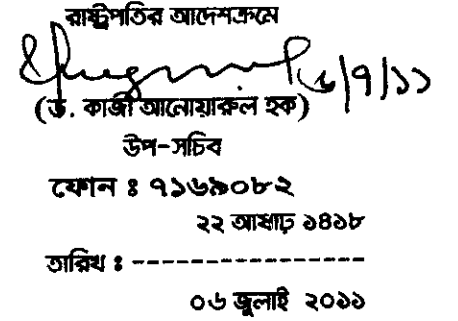 রাষ্ট্রপতির আদেশক্রমে
৬/৭/১১
(ড. কাজী আনোয়ারুল হক)
উপ-সচিব
ফোন ঃ ৭১৬৯০৮২
২২ আষাঢ় ১৪১৮
তারিখ ঃ -----------------
০৬ জুলাই ২০১১